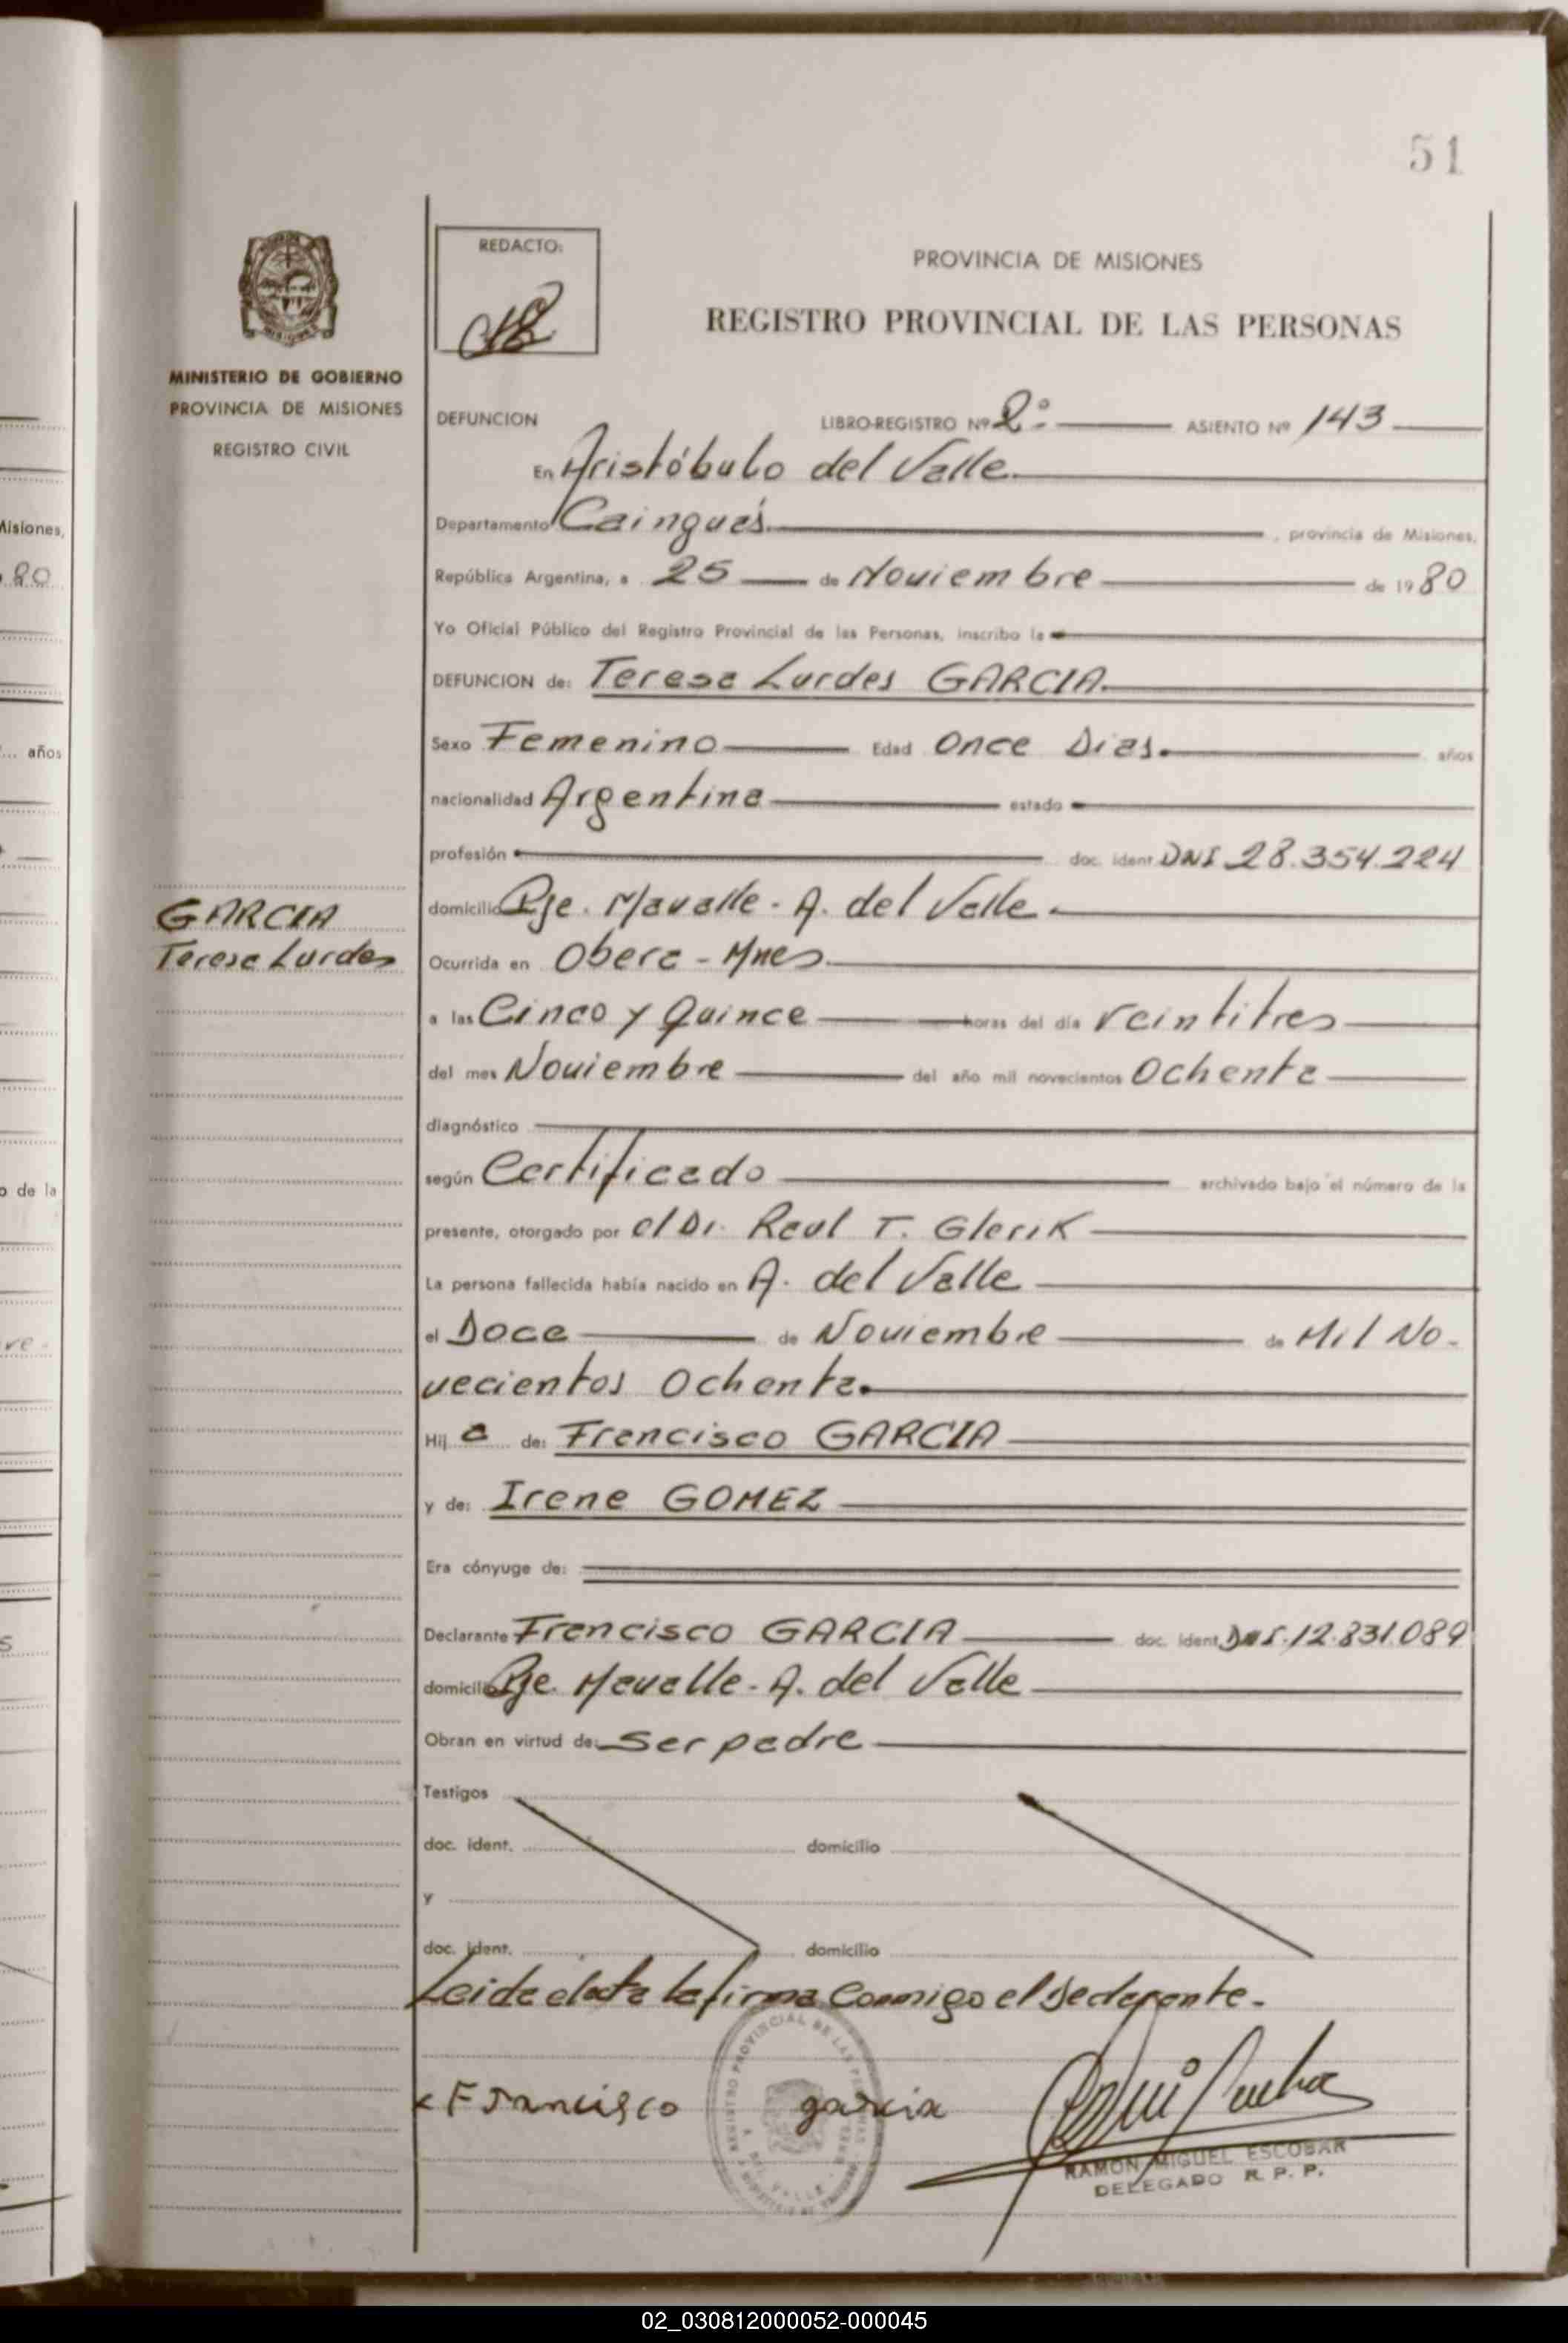 51
REDACTO:
PROVINCIA DE MISIONES
REGISTRO PROVINCIAL DE LAS PERSONAS
MINISTERIO DE GOBIERNO
PROVINCIA DE MISIONES
REGISTRO CIVIL
DEFUNCION LIBRO-REGISTRO Nº 2º ASIENTO Nº 143
En Aristóbulo del Valle
Departamento Cainguás, provincia de Misiones,
República Argentina, a 25 de Noviembre de 1980
Yo Oficial Público del Registro Provincial de las Personas, inscribo la
DEFUNCION de: Teresa Lurdes GARCIA
Sexo Femenino Edad Once Dias. años
nacionalidad Argentina estado
profesión doc. ident. DNI 28.354.224
GARCIA
Teresa Lurdes
domicilio Pje. Mavalle - A. del Valle.
Ocurrida en Obera - Mnes
a las Cinco y Quince horas del día veintitres
del mes Noviembre del año mil novecientos Ochenta
diagnóstico
según Certificado archivado bajo el número de la
presente, otorgado por el Dr. Raul T. Glerik
La persona fallecida había nacido en A. del Valle
el Doce de Noviembre de Mil No-
vecientos Ochenta.
Hij a de: Francisco GARCIA
y de: Irene GOMEZ
Era cónyuge de:
Declarante Francisco GARCIA doc. ident. DNI. 12.831.089
domicilio Pje. Mavalle - A. del Valle
Obran en virtud de: Ser padre
Testigos
doc. ident. domicilio
y
doc. ident. domicilio
Leida el acta la firma Conmigo el
Francisco garcia
RAMON MIGUEL ESCOBAR
DELEGADO R. P. P.
REGISTRO PROVINCIAL DE LAS PERSONAS
A. DEL VALLE
Misiones,
80
años
o de la
02_030812000052-000045